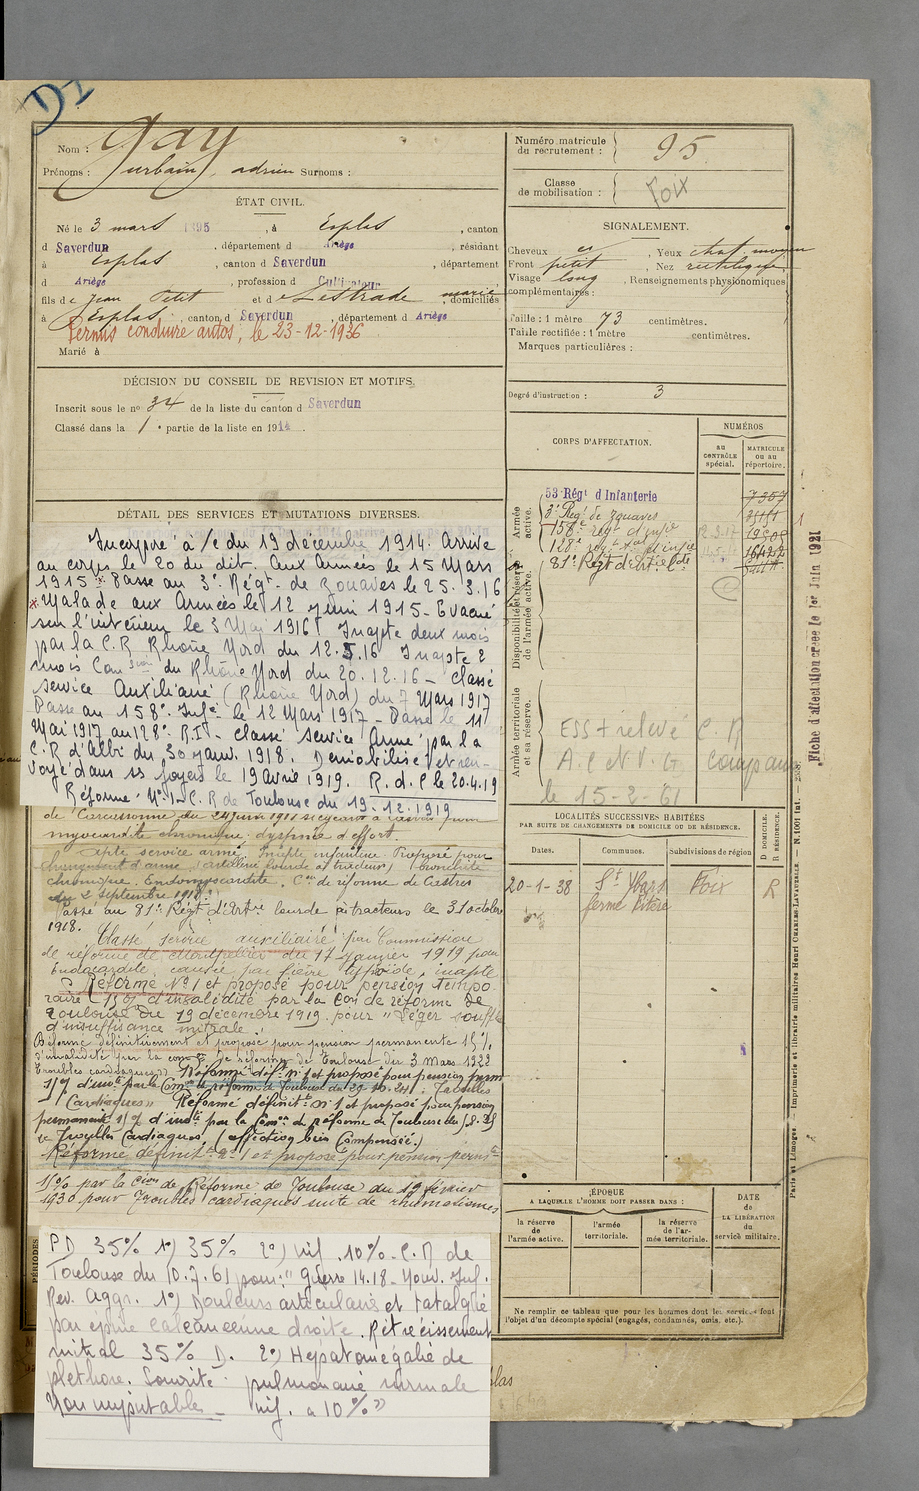 D2
Nom : Gay
Prénoms : Urbain, adrien Surnoms :
ÉTAT CIVIL.
Né le 3 mars 1895, à Esplas, canton
d Saverdun, département d Ariège, résidant
à Esplas, canton d Saverdun, département
d Ariège, profession d Cultivateur
fils de Jean Petit et de Lestrade mariés, domiciliés
à Esplas, canton d Saverdun, département d Ariège
Permis conduire autos, le 23-12-1936
Marié à
DÉCISION DU CONSEIL DE REVISION ET MOTIFS.
Inscrit sous le no 34 de la liste du canton d Saverdun
Classé dans la 1e partie de la liste en 1914.
DÉTAIL DES SERVICES ET MUTATIONS DIVERSES.
Incorporé à/c du 19 décembre 1914. Arrivé
au corps le 20 du dit. Aux Armées le 15 Mars
1915 * Passé au 3e Régt. de Zouaves le 25.3.16
* Malade aux Armées le 12 Juin 1915 - Evacué
sur l'intérieur le 3 Mai 1916. Inapte deux mois
par la C.R Rhône Nord du 12.5.16 Inapte 2
mois Com sion du Rhône Nord du 20.12.16 - Classé
service Auxiliaire (Rhône Nord) du 7 Mars 1917
Passe au 158e Infie le 12 Mars 1917 - Passe le 11
Mai 1917 au 128e R.I - classé service Armé par la
C.R d'Albi du 30 janv. 1918. Démobilisé et ren-
voyé dans ss foyers le 19 Avril 1919. R.d.C le 20.4.19
Réforme No 1 - C.R de Toulouse du 19.12.1919
de Carcassonne du 24 juin 1918
myocardite chronique, dyspnée d'effort.
apte service armé, Inapte infanterie. Proposé pour
changement d'arme (artillerie lourde à tracteurs) bronchite
chronique. Endomyocardite. Con de réforme de Castres
du 2 septembre 1918.
Passé au 81e Régt d'Artie lourde à tracteurs le 31 octobre
1918.
Classé service auxiliaire par Commission
de réforme de Montpellier du 17 janvier 1919 pour
Endocardite, causée par fièvre typhoïde, inapte
Réformé No 1 et proposé pour pension tempo
raire (15% d'invalidité par la Con de réforme de
Toulouse du 19 décembre 1919. pour "Léger souffle
d'insuffisance mitrale.
Réformé définitivement et proposé pour pension permanente 15%
d'invalidité par la com on de réforme de Toulouse du 3 Mars 1922
(Troubles cardiaques) Réformé déf. no 1 et proposé pour pension perm
15% d'invté par la Comon de réforme de Toulouse du 29.10.24 : Troubles
Cardiaques" Réformé définit t no 1 et proposé pour pension
permanente 15% d'invté par la Comon de réforme de Toulouse du
Troubles Cardiaques. (affection bien compensée.)
Réformé définit t no 1 et proposé pour pension perm te
15% par la Cion de Réforme de Toulouse du 19 février
1930 pour Troubles cardiaques suite de rhumatismes
PD 35% 1o) 35% 2o) inf. 10%. C.R de
Toulouse du 10.7.61 pour:" guerre 14.18 - Nouv. Inf.
Rev. Aggr. 1o) Douleurs articulaires et talalgie
par épine calcanéenne droite. Rétrécissement
mitral 35% D. 2o) Hépatomégalie de
pléthore. Sonorité pulmonaire normale
Non imputable - inf. à 10%"
Numéro matricule
du recrutement : 95
Classe
de mobilisation : Foix
SIGNALEMENT.
Cheveux, Yeux chat. moyen
Front petit, Nez rectiligne
Visage long, Renseignements physionomiques
complémentaires :
Taille : 1 mètre 73 centimètres.
Taille rectifiée : 1 mètre centimètres.
Marques particulières :
Degré d'instruction : 3
CORPS D'AFFECTATION.
NUMÉROS
au
CONTRÔLE
spécial.
MATRICULE
ou au
répertoire.
Armée
active.
53 Régt d Infanterie 7357
3e Régt de Zouaves
158e régt d'infie
128e régt d'infie
81e Régt d'Artie Lde
Disponibilité et réserve
de l'armée active.
Armée territoriale
et sa réserve.
ESS + relevé C.R
A.C N.V.G Campagne
le 15-2-61
LOCALITÉS SUCCESSIVES HABITÉES
PAR SUITE DE CHANGEMENTS DE DOMICILE OU DE RÉSIDENCE.
Dates. Communes. Subdivisions de région
D DOMICILE.
R RÉSIDENCE.
20-1-38 St Ybars Foix R
ferme Pitère
ÉPOQUE
A LAQUELLE L'HOMME DOIT PASSER DANS :
la réserve
de l'armée active.
l'armée
territoriale.
la réserve
de l'ar-
mée territoriale.
DATE
de
LA LIBÉRATION
du
service militaire.
Ne remplir ce tableau que pour les hommes dont les services font
l'objet d'un décompte spécial (engagés, condamnés, omis, etc.).
PÉRIODES
Fiche d'affectation créée le 1er Juin 1921
Paris et Limoges. — Imprimerie et librairie militaires Henri CHARLES-LAVAUZELLE. — N. 1001 Int.
plas